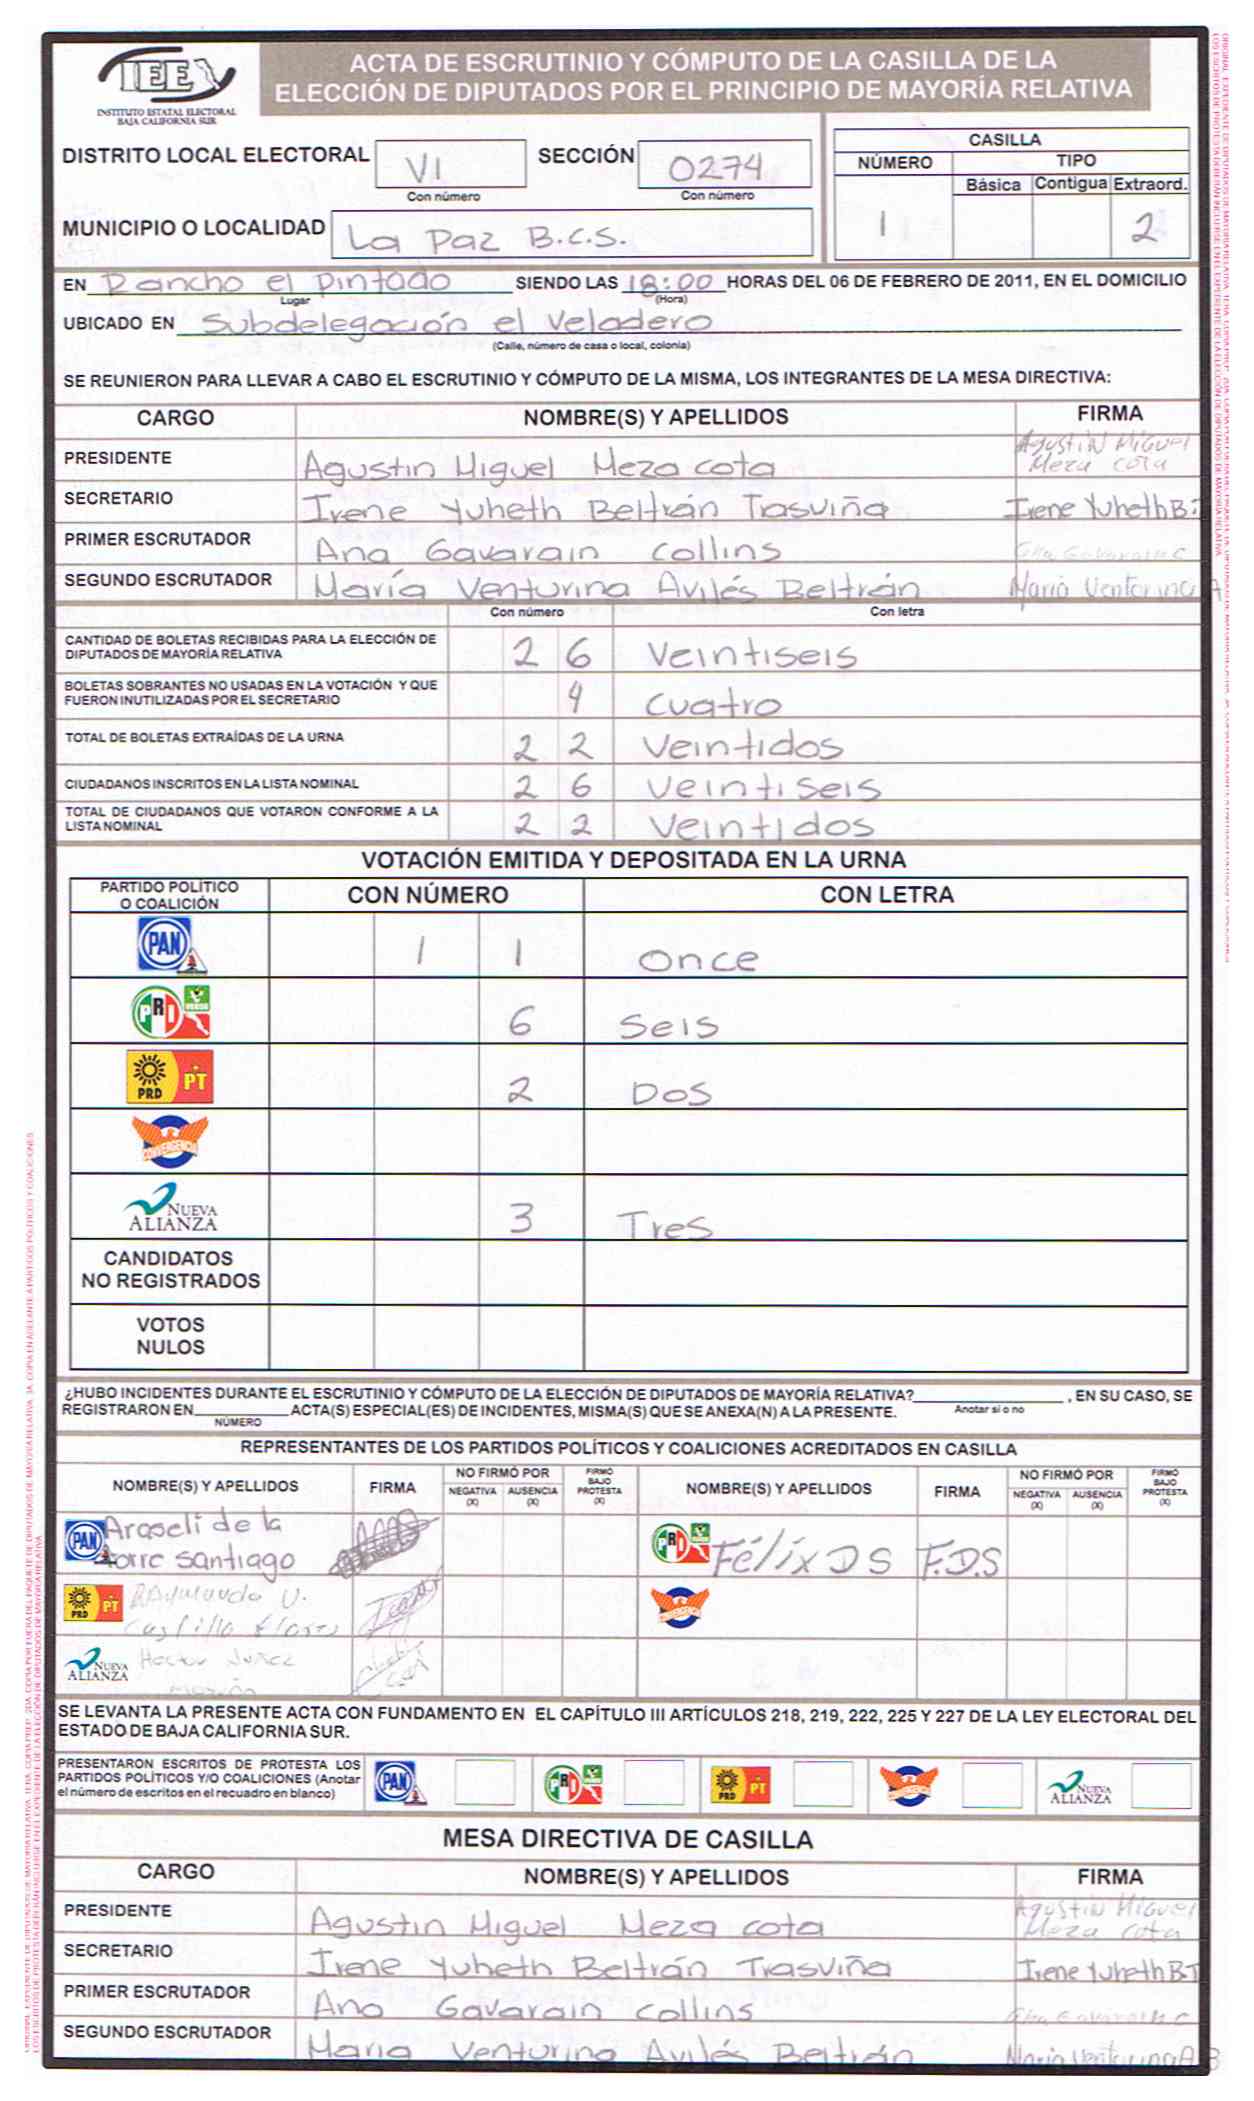 IEE
INSTITUTO ESTATAL ELECTORAL
BAJA CALIFORNIA SUR
ACTA DE ESCRUTINIO Y CÓMPUTO DE LA CASILLA DE LA
ELECCIÓN DE DIPUTADOS POR EL PRINCIPIO DE MAYORÍA RELATIVA
DISTRITO LOCAL ELECTORAL VI SECCIÓN 0274
Con número Con número
MUNICIPIO O LOCALIDAD La Paz B.C.S.
CASILLA
NÚMERO TIPO
Básica Contigua Extraord.
1 2
EN Rancho el Pintado SIENDO LAS 18:00 HORAS DEL 06 DE FEBRERO DE 2011, EN EL DOMICILIO
Lugar (Hora)
UBICADO EN Subdelegación el Veladero
(Calle, número de casa o local, colonia)
SE REUNIERON PARA LLEVAR A CABO EL ESCRUTINIO Y CÓMPUTO DE LA MISMA, LOS INTEGRANTES DE LA MESA DIRECTIVA:
CARGO NOMBRE(S) Y APELLIDOS FIRMA
PRESIDENTE Agustin Miguel Meza cota Agustin Miguel Meza cota
SECRETARIO Irene Yuheth Beltrán Trasviña Irene Yuheth B.T
PRIMER ESCRUTADOR Ana Gavarain Collins
SEGUNDO ESCRUTADOR María Venturina Avilés Beltrán María Venturina A
Con número Con letra
CANTIDAD DE BOLETAS RECIBIDAS PARA LA ELECCIÓN DE
DIPUTADOS DE MAYORÍA RELATIVA 2 6 Veintiseis
BOLETAS SOBRANTES NO USADAS EN LA VOTACIÓN Y QUE
FUERON INUTILIZADAS POR EL SECRETARIO 4 Cuatro
TOTAL DE BOLETAS EXTRAÍDAS DE LA URNA 2 2 Veintidos
CIUDADANOS INSCRITOS EN LA LISTA NOMINAL 2 6 Veintiseis
TOTAL DE CIUDADANOS QUE VOTARON CONFORME A LA
LISTA NOMINAL 2 2 Veintidos
VOTACIÓN EMITIDA Y DEPOSITADA EN LA URNA
PARTIDO POLÍTICO
O COALICIÓN CON NÚMERO CON LETRA
PAN 1 1 Once
PRI VERDE 6 Seis
PRD PT 2 Dos
CONVERGENCIA
NUEVA ALIANZA 3 Tres
CANDIDATOS
NO REGISTRADOS
VOTOS
NULOS
¿HUBO INCIDENTES DURANTE EL ESCRUTINIO Y CÓMPUTO DE LA ELECCIÓN DE DIPUTADOS DE MAYORÍA RELATIVA? , EN SU CASO, SE
REGISTRARON EN ACTA(S) ESPECIAL(ES) DE INCIDENTES, MISMA(S) QUE SE ANEXA(N) A LA PRESENTE. Anotar si o no
NÚMERO
REPRESENTANTES DE LOS PARTIDOS POLÍTICOS Y COALICIONES ACREDITADOS EN CASILLA
NOMBRE(S) Y APELLIDOS FIRMA NO FIRMÓ POR NEGATIVA (X) AUSENCIA (X) FIRMÓ BAJO PROTESTA (X) NOMBRE(S) Y APELLIDOS FIRMA NO FIRMÓ POR NEGATIVA (X) AUSENCIA (X) FIRMÓ BAJO PROTESTA (X)
PAN Araseli de la
torre Santiago
PRI Félix D S F.D.S
PRD PT Raymundo V.
Castillo Flores
CONVERGENCIA
NUEVA ALIANZA Hector
SE LEVANTA LA PRESENTE ACTA CON FUNDAMENTO EN EL CAPÍTULO III ARTÍCULOS 218, 219, 222, 225 Y 227 DE LA LEY ELECTORAL DEL
ESTADO DE BAJA CALIFORNIA SUR.
PRESENTARON ESCRITOS DE PROTESTA LOS
PARTIDOS POLÍTICOS Y/O COALICIONES (Anotar
el número de escritos en el recuadro en blanco)
PAN PRI PRD PT CONVERGENCIA NUEVA ALIANZA
MESA DIRECTIVA DE CASILLA
CARGO NOMBRE(S) Y APELLIDOS FIRMA
PRESIDENTE Agustin Miguel Meza cota Agustin Miguel Meza cota
SECRETARIO Irene Yuheth Beltrán Trasviña Irene Yuheth B.T
PRIMER ESCRUTADOR Ana Gavarain Collins
SEGUNDO ESCRUTADOR Maria Venturina Avilés Beltrán Maria Venturina A B